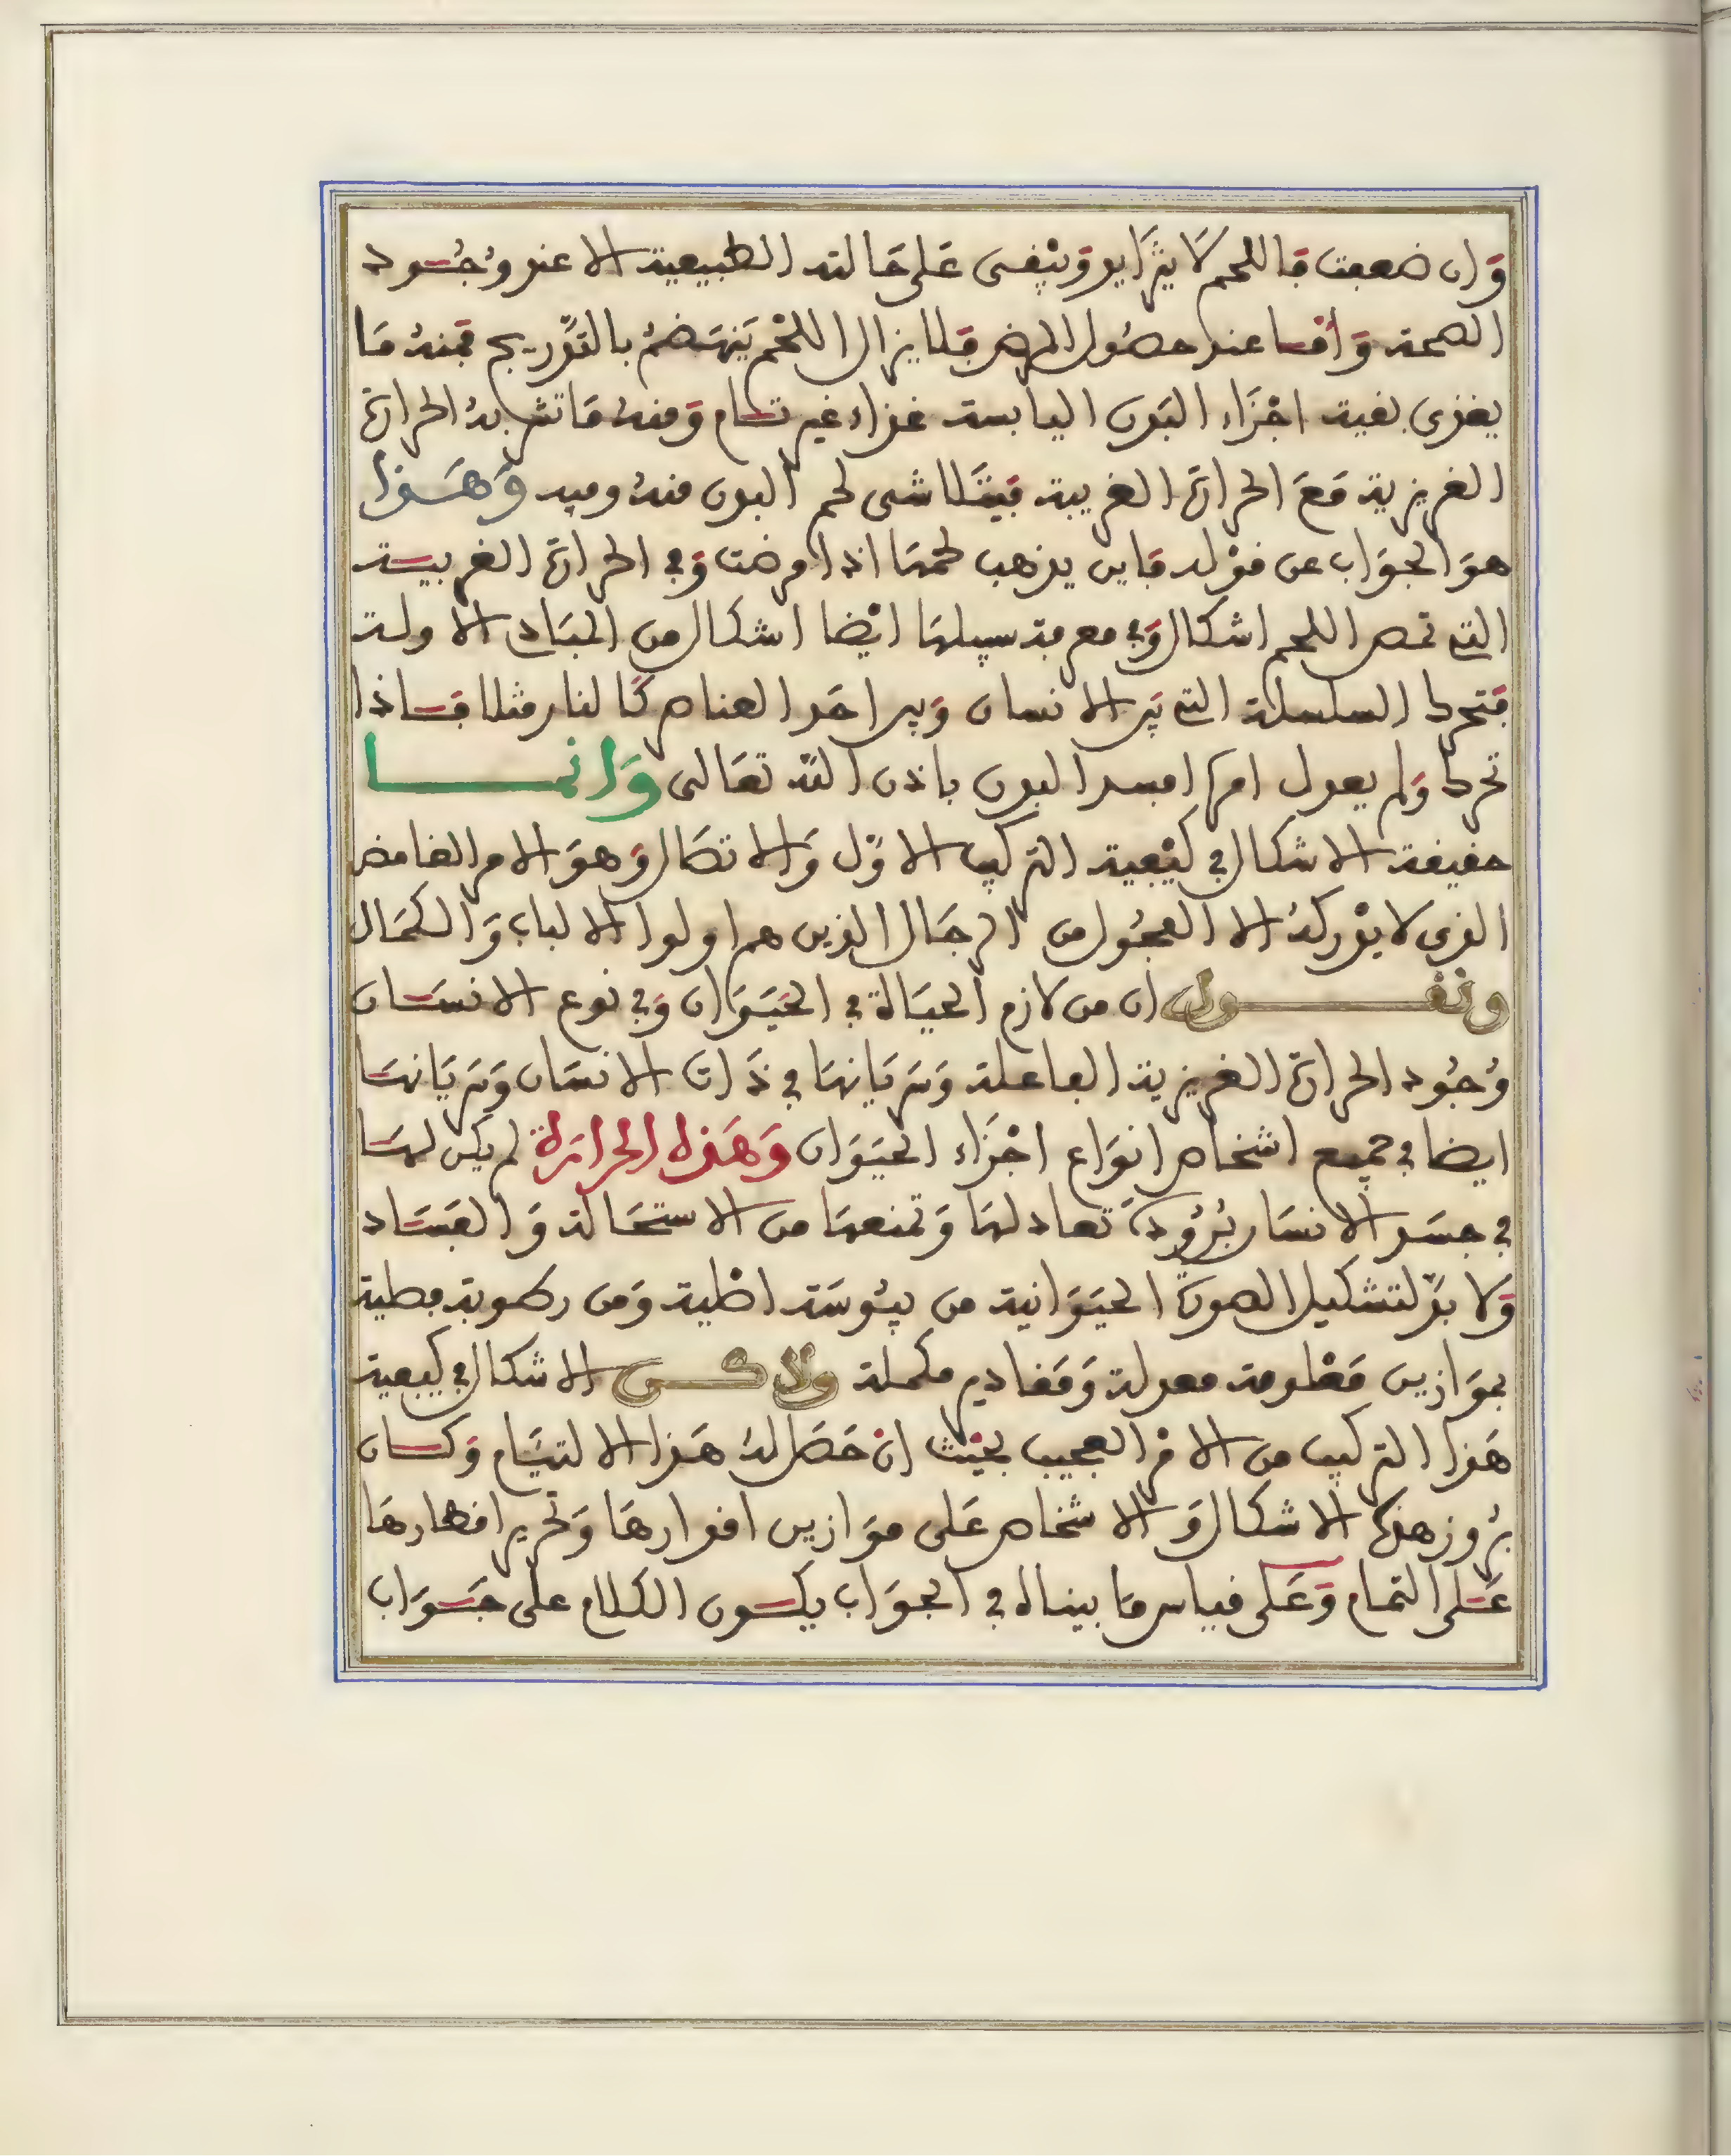 وَان ضعفت فاللحم لَا يتزايد وَيبْقى عَلى حَالته الطبيعية الا عند وُجُود
الصحة وَأمْا عند حصُول المرض فَلا يزال اللحْم يَنهَضمُ بالتدّريج فمنهُ مَا
يغذى بقية اجْزَاء البَدن اليابسة غذاء غير تام وَمنهُ مَا تشربهُ الحرارة
الغريزية مَعَ الحرارة الغريبة فيتَلاشى لحم البدن منهُ وفيه وَهَذا
هوَ الجوَاب عن قوْله فَاين يذهب لحمهَا اذا مرضت وَفي الحرارة الغريبة
التي تمص اللحم اشكال وَفي معرفة سبيلهَا ايْضا اشكال من المبَادي الاولة
فتحرك السلسلة التي بَين الانسان وَبين احَد العناصر كَالنار مثلا فَاذا
تحرك وَلم يعدل امرها فسد البدن باذن اللّه تعَالى وَانمَا
حقيقة الاشكال في كيْفية التركيب الاوّل وَالاتصَال وَهوَ الامر الغامض
الذى لا يدْركهُ الا الفحُول من الرجَال الذين هم اولوا الالباب وَالكمَال
ونقول ان من لازم الحيَاة في الحَيَوَان وَفي نوع الانسَان
وُجُود الحرارة الغريزية الفاعلة وَسَريَانهَا في ذَات الانسَان وَسَريَانهَا
ايضا في جميع اشخاص انوَاع اجْزَاء الحيَوَان وَهَذه الحرَارَة لم يكن لهَا
في جسَد الانسَان بُرُودَة تعادلهَا وَتمنعهَا من الاستحَالة وَالفسَاد
وَلا بدّ لتشكيل الصورَة الحيَوَانية من يبُوسَة اصْلية وَمن رطوبة فضلية
بموَازين مَعْلومة معدلة وَمَقادير مكملة ولاكن الاشكال في كيفية
هَذا التركيب من الامْر العجيب بحيْث انْ حَصَل لهُ هَذا الالتيَام وَكان
بُروز هذه الاشكال وَالاشخاص عَلى موَازين اقدارهَا وَتحرير اقطارهَا
عَلى التمام وَعَلى قياس مَا بيناه في الجوَاب يكون الكلام على جوَاب